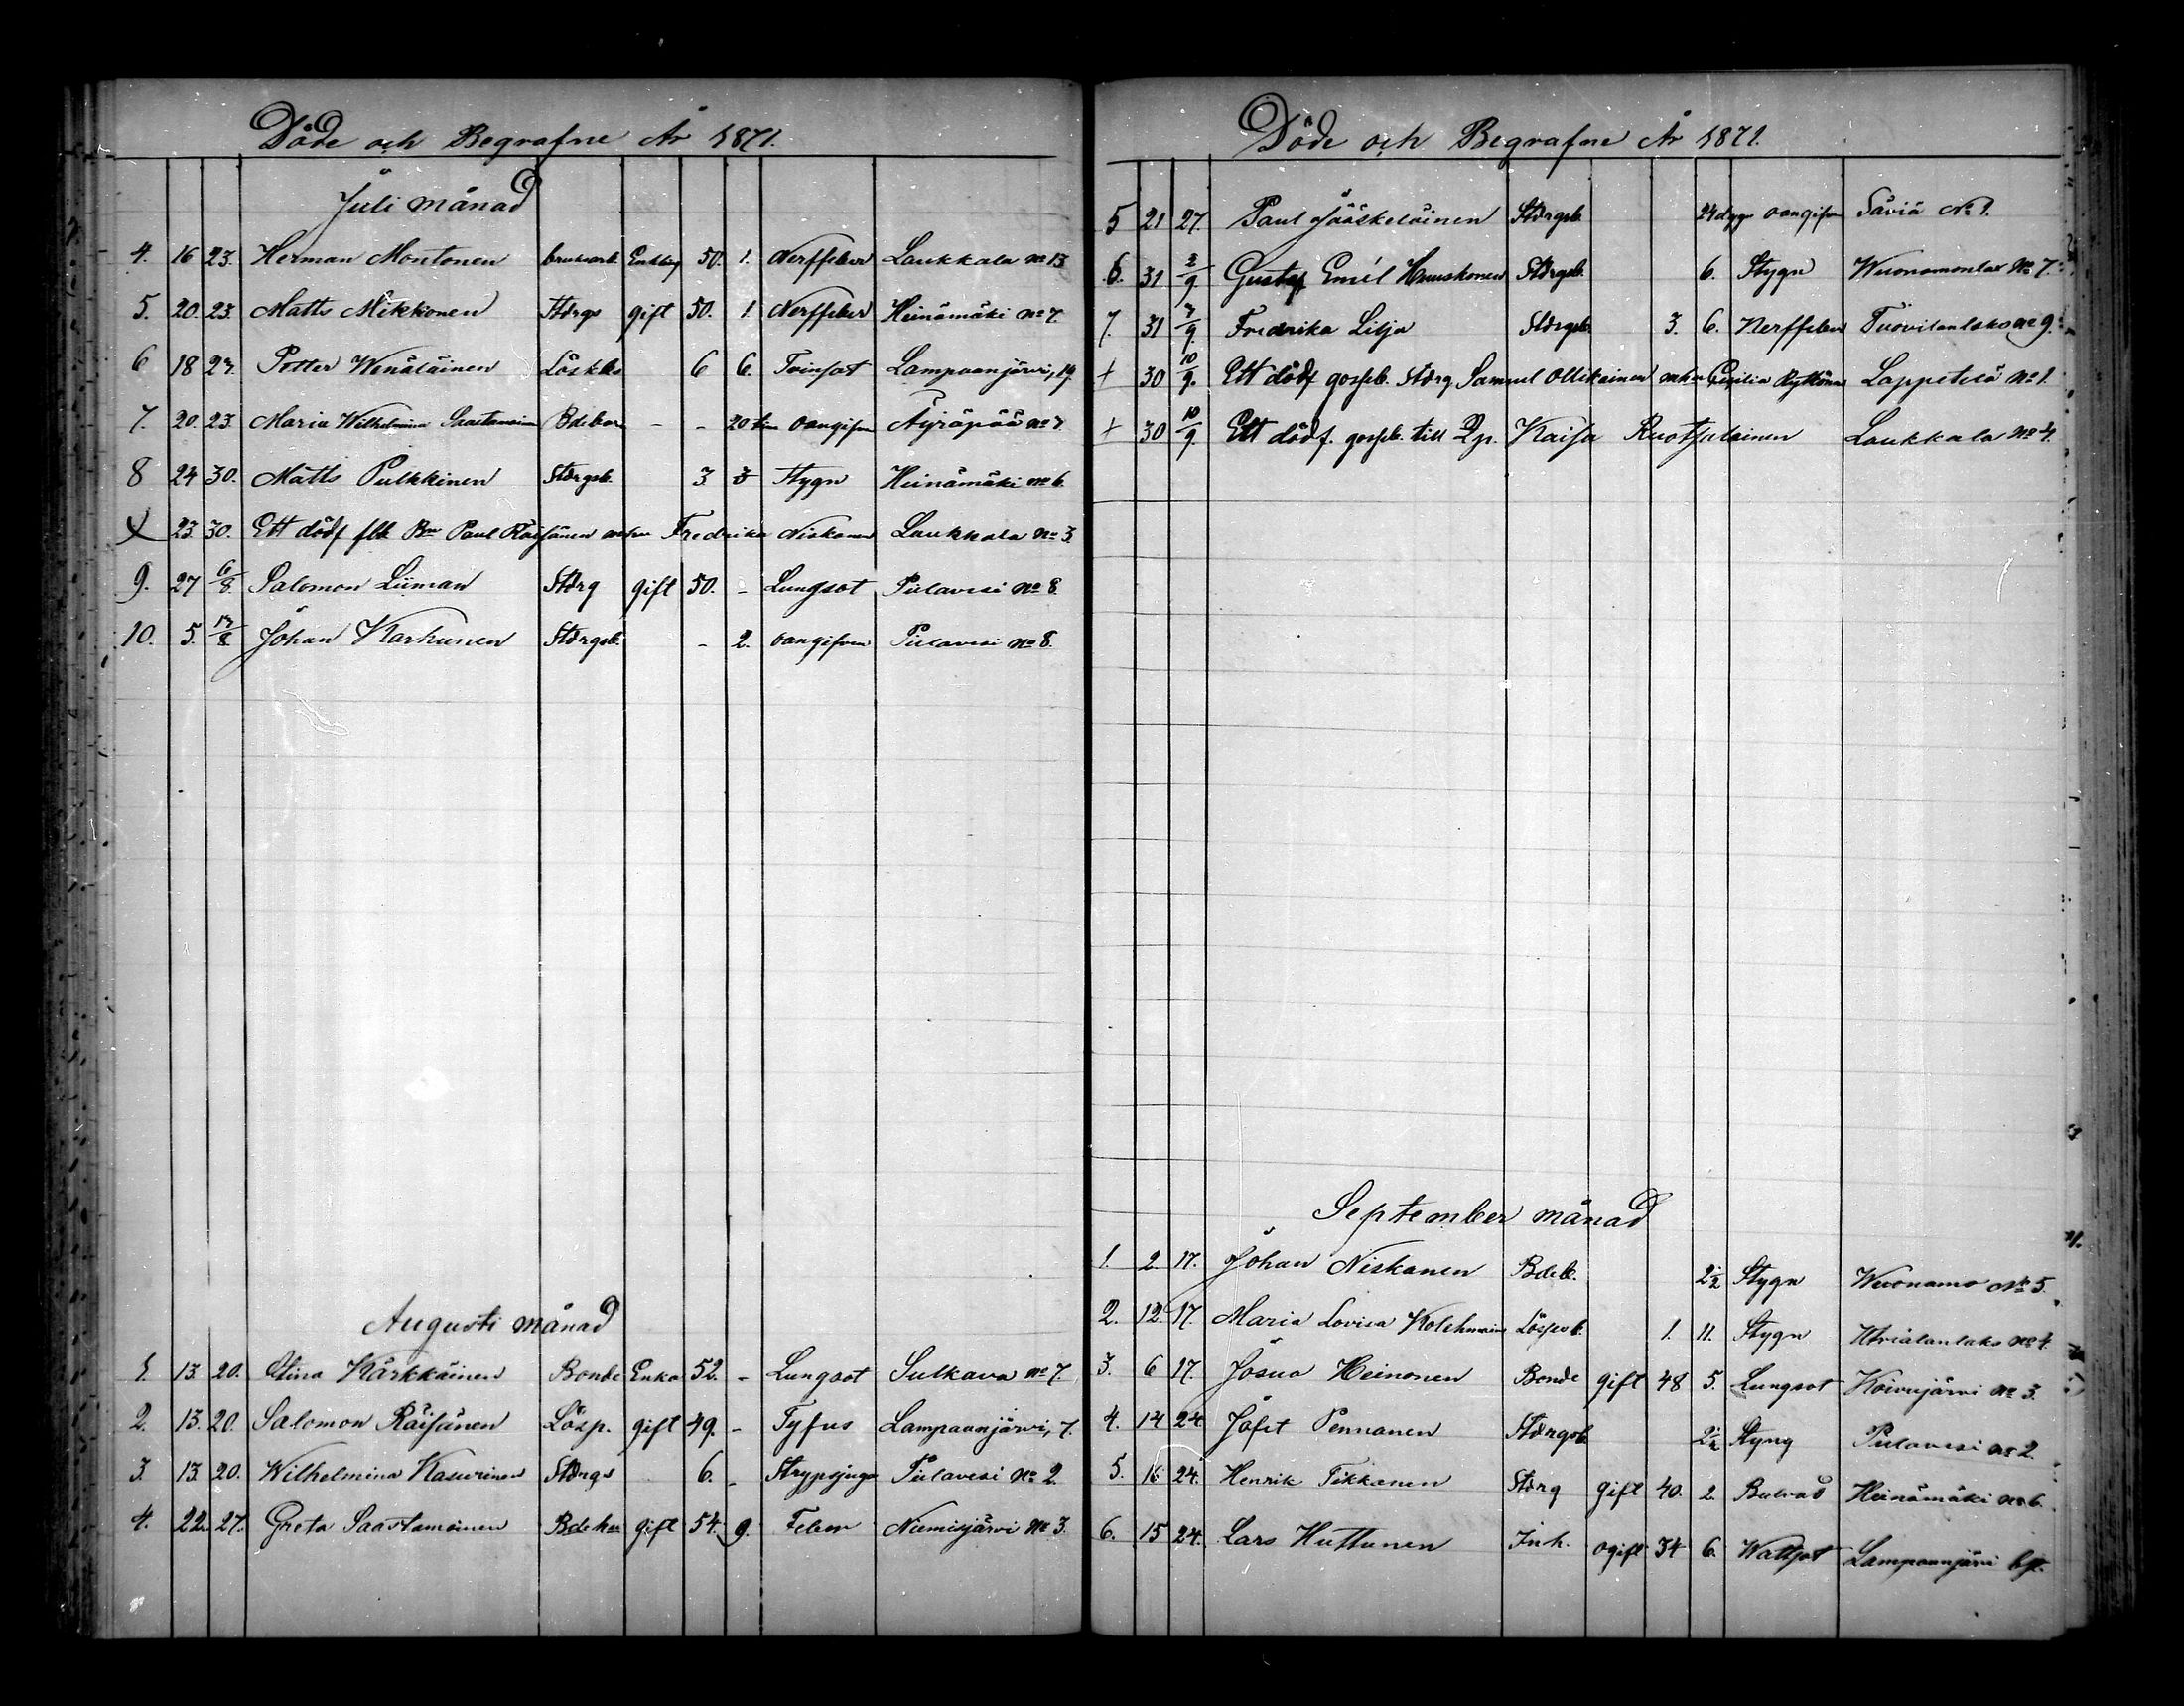 Döde och Begrafne År 1871.
Juli månad
4. 16 23. Herman Montonen bruksarb. Enkling 50. 1. Nerffeber Laukkala No 13
5. 20. 23. Matts Mikkonen Stdrgs gift 50. 1 Nerffeber Heinämäki No 7.
6 18 23. Petter Wenäläinen Löskbs 6 6. Tvinsot Lampaanjärvi, 19.
7. 20. 23. Maria Wilhelmina Saastamoinen Bdebarn - - 20 tim oangifven Äyräpää No 7
8 24 30. Matts Pulkkinen Stdrgsb. 3 3 Stygn Heinämäki No 6.
X 23. 30. Ett dödf flb Bn Paul Räisänen o hu Fredrika Niskanen Laukkala No 3.
9. 27 6/8 Salomon Liiman Stdrg gift 50. - Lungsot Pielavesi No 8.
10. 5. 13/8 Johan Karhunen Stdrgsb. - 2. oangifven Pielavesi No 8.
Augusti månad
1. 13. 20. Stina Kärkkäinen Bonde Enka 52. - Lungsot Sulkava No 7.
2. 13. 20. Salomon Räisänen Lösp. gift 49. - Tyfus Lampaanjärvi, 7.
3. 13. 20. Wilhelmina Kasurinen Stdrgs 6. - Strypsjuga Pielavesi No 2.
4. 22. 27. Greta Saastamoinen Bdehu gift 54. 9. Feber Niemisjärvi No 3.
Döde och Begrafne År 1871.
5 21 27. Paul Jääskeläinen Stdrgsb. 24 dygn oangifven Säviä No 1.
6. 31 3/9 Gustaf Emil Huuskonen Stdrgsb. 6. Stygn Wuonamonlax No 7.
7. 31 3/9. Fredrika Lilja Stdrgsb. 3. 6. Nerffeber Tuovilanlaks No 9.
+ 30 10/9. Ett dödf gosseb. Stdrg Samuel Ollikainen o hu Cecilia Rytkönen Lappetelä No 1.
+ 30 10/9. Ett dödf. gosseb. till Qp. Kaisa Ruotsalainen Laukkala No 4.
September månad
1. 2 17. Johan Niskanen Bdeb. 2 1/2 Stygn Wuonamo No 5.
2. 12. 17. Maria Lovisa Kolehmainen Löspsb. 1. 11. Stygn No 4.
3. 6 17. Josua Heinonen Bonde gift 48 5. Lungsot Koivujärvi No 3.
4. 14 24. Jafet Pennanen Stdrgsb. 2 1/2 Styng Pielavesi No 2.
5. 16 24. Henrik Tikkanen Stdrg gift 40. 2. Heinämäki No 6.
6. 15 24. Lars Huttunen Inh. ogift 34 6. Wattsot Lampaanjärvi